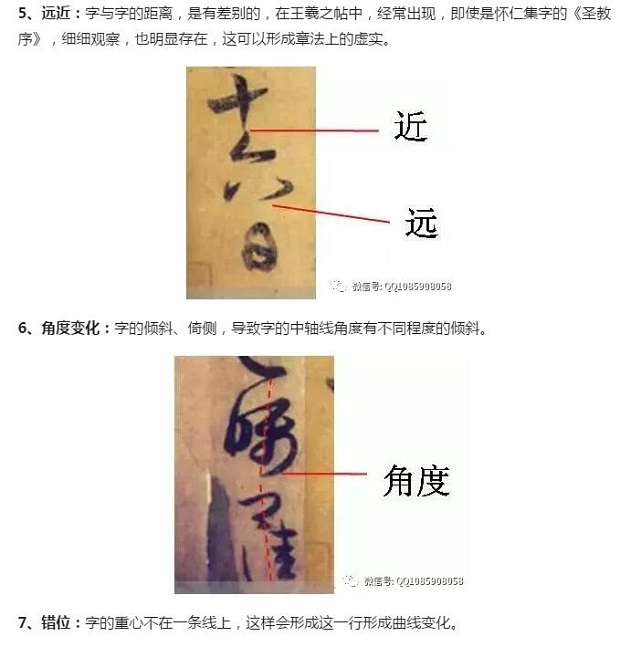 5、远近：字与字的距离，是有差别的，在王羲之帖中，经常出现，即使是怀仁集字的《圣教
序》，细细观察，也明显存在，这可以形成章法上的虚实。
十
六
日
近
远
微信号: QQ1085908058
6、角度变化：字的倾斜、倚侧，导致字的中轴线角度有不同程度的倾斜。
角度
微信号: QQ1085908058
7、错位：字的重心不在一条线上，这样会形成这一行形成曲线变化。